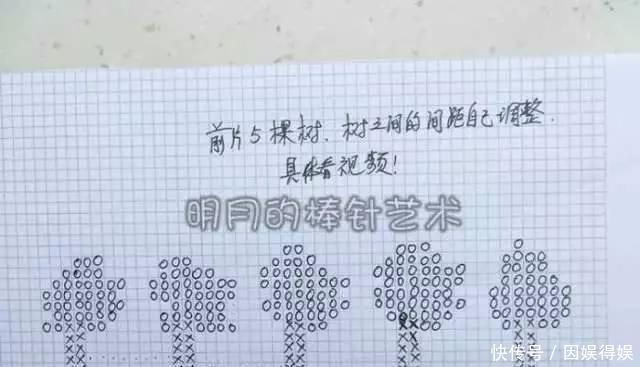 前片5棵树、树之间的间距自己调整.
具体看视频!
明月的棒针艺术
快传号 / 因娱得娱